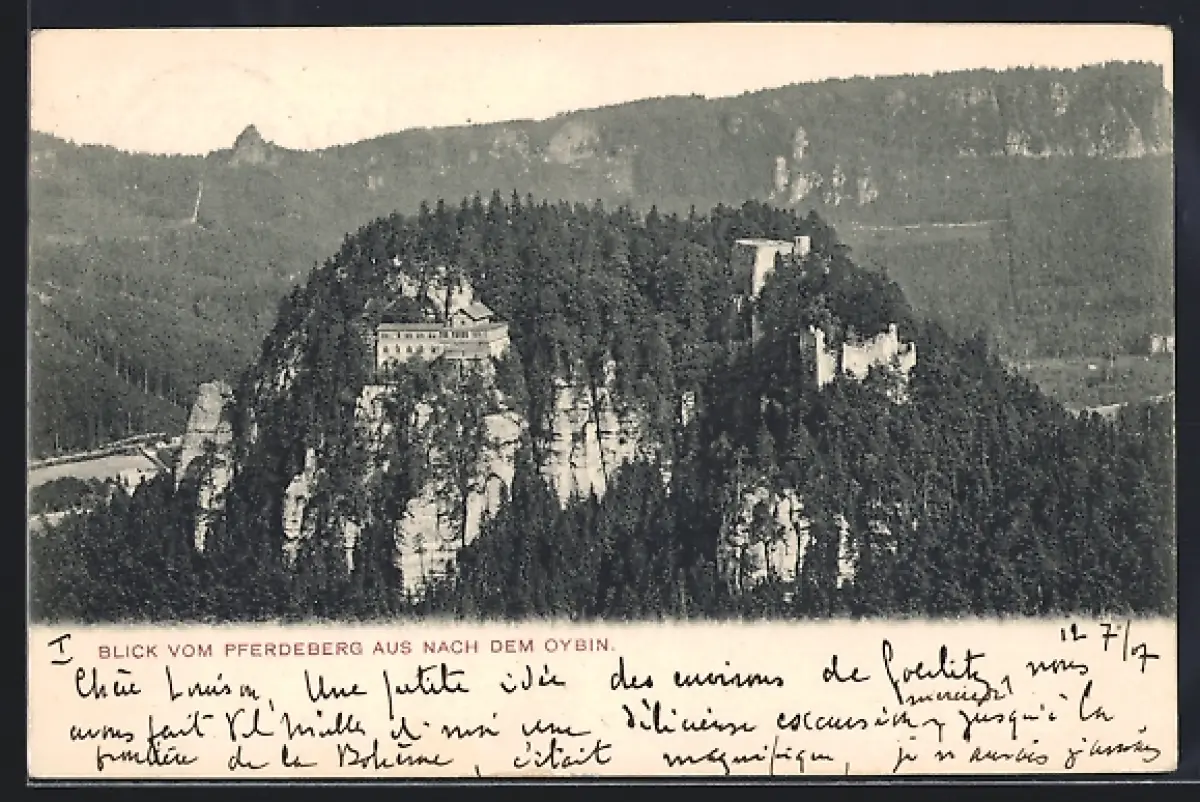 I BLICK VOM PFERDEBERG AUS NACH DEM OYBIN. 12 7/07
Chère Louison, Une petite idée des environs de Goerlitz, nous
avons fait et moi une délicieuse excursion jusqu'à la
mercredi
frontière de la Bohème, c'était magnifique, je n'aurais j'assais